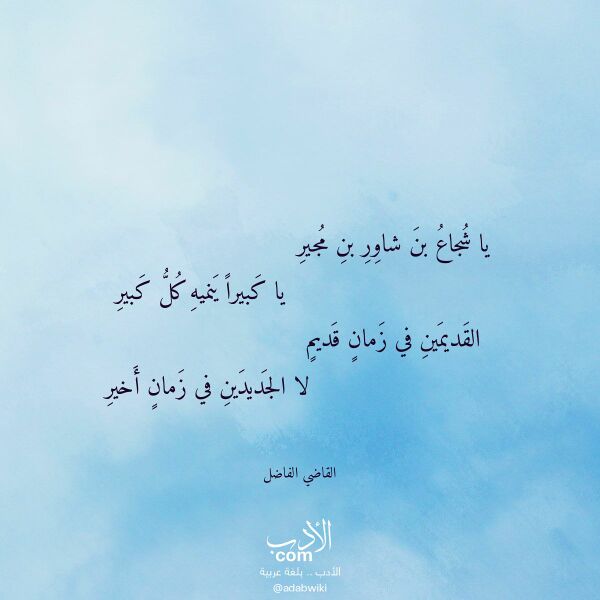 يا شُجاعُ بنَ شاوِرِ بنِ مُجيرِ
يا كَبيراً يَنميهِ كُلُّ كَبيرِ
القَديمَينِ في زَمانٍ قَديمٍ
لا الجَديدَينِ في زَمانٍ أَخيرِ
القاضي الفاضل
الأدب
com
الأدب .. بلغة عربية
@adabwiki